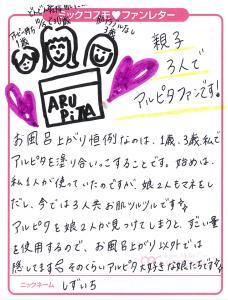 ニックコスモ♥ファンレター
1歳
3歳
ARU
PITA
親子
3人で
アルピタファンです!
お風呂上がり恒例なのは、1歳、3歳、私で
アルピタを塗り合いっこすることです。始めは、
私1人が使っていたのですが、娘2人もマネをし
だし、今では3人共お肌ツルツルです。
アルピタを娘2人が見つけてしまうと、すごい量
を使用するので、お風呂上がり以外では
隠してます。そのくらいアルピタ大好きな娘たちです。
ニックネーム しずいち